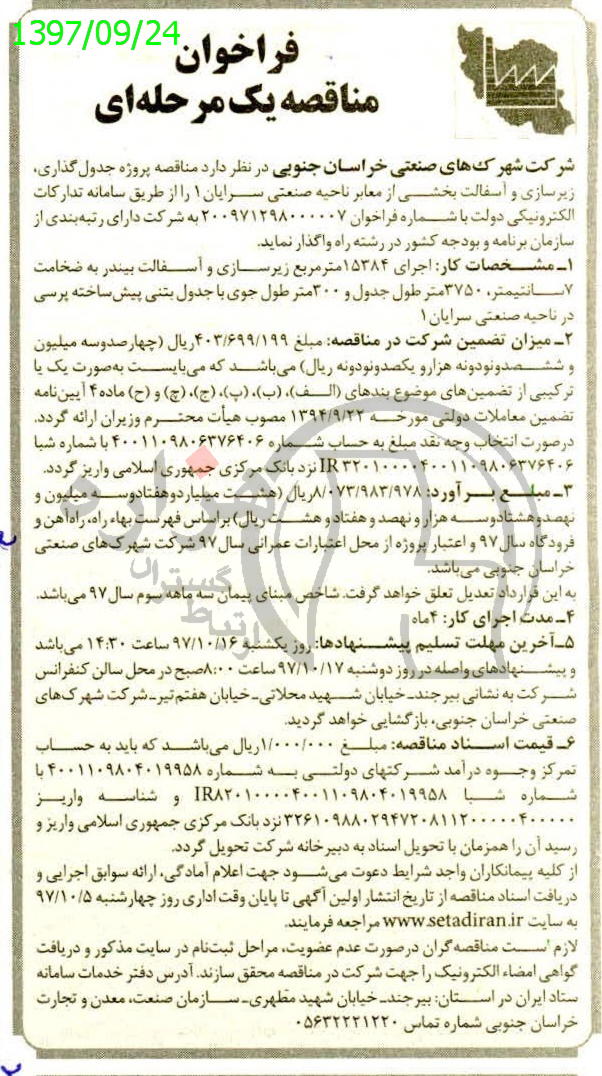 1397/09/24
فراخوان
مناقصه یک مرحله‌ای
شرکت شهرک‌های صنعتی خراسان جنوبی در نظر دارد مناقصه پروژه جدول‌گذاری،
زیرسازی و آسفالت بخشی از معابر ناحیه صنعتی سرایان۱ را از طریق سامانه تدارکات
الکترونیکی دولت با شماره فراخوان ۲۰۰۹۷۱۲۹۸۰۰۰۰۰۷ به شرکت دارای رتبه‌بندی از
سازمان برنامه و بودجه کشور در رشته راه واگذار نماید.
۱ـ مشخصات کار: اجرای ۱۵۳۸۴مترمربع زیرسازی و آسفالت بیندر به ضخامت
۷سانتیمتر، ۳۷۵۰متر طول جدول و ۳۰۰متر طول جوی با جدول بتنی پیش‌ساخته پرسی
در ناحیه صنعتی سرایان۱
۲ـ میزان تضمین شرکت در مناقصه: مبلغ ۴۰۳/۶۹۹/۱۹۹ریال (چهارصدوسه میلیون
و ششصدونودونه هزارو یکصدونودونه ریال) می‌باشد که می‌بایست به‌صورت یک یا
ترکیبی از تضمین‌های موضوع بندهای (الف)، (ب)، (پ)، (ج)، (چ) و (ح) ماده۴ آیین‌نامه
تضمین معاملات دولتی مورخه ۱۳۹۴/۹/۲۲ مصوب هیأت محترم وزیران ارائه گردد.
درصورت انتخاب وجه نقد مبلغ به حساب شماره ۴۰۰۱۱۰۹۸۰۶۳۷۶۴۰۶ با شماره شبا
IR ۳۲۰۱۰۰۰۰۴۰۰۱۱۰۹۸۰۶۳۷۶۴۰۶ نزد بانک مرکزی جمهوری اسلامی واریز گردد.
۳ـ مبلغ برآورد: ۸/۰۷۳/۹۸۳/۹۷۸ریال (هشت میلیاردوهفتادوسه میلیون و
نهصدوهشتادوسه هزار و نهصد و هفتاد و هشت ریال) براساس فهرست بهاء راه، راه‌آهن و
فرودگاه سال۹۷ و اعتبار پروژه از محل اعتبارات عمرانی سال۹۷ شرکت شهرک‌های صنعتی
خراسان جنوبی می‌باشد.
به این قرارداد تعدیل تعلق خواهد گرفت. شاخص مبنای پیمان سه ماهه سوم سال۹۷ می‌باشد.
۴ـ مدت اجرای کار: ۴ماه
۵ـ آخرین مهلت تسلیم پیشنهادها: روز یکشنبه ۹۷/۱۰/۱۶ ساعت ۱۴:۳۰ می‌باشد
و پیشنهادهای واصله در روز دوشنبه ۹۷/۱۰/۱۷ ساعت ۸:۰۰صبح در محل سالن کنفرانس
شرکت به نشانی بیرجند ـ خیابان شهید محلاتی ـ خیابان هفتم‌تیر ـ شرکت شهرک‌های
صنعتی خراسان جنوبی، بازگشایی خواهد گردید.
۶ـ قیمت اسناد مناقصه: مبلغ ۱/۰۰۰/۰۰۰ریال می‌باشد که باید به حساب
تمرکز وجوه درآمد شرکتهای دولتی به شماره ۴۰۰۱۱۰۹۸۰۴۰۱۹۹۵۸ با
شماره شبا IR۸۲۰۱۰۰۰۰۴۰۰۱۱۰۹۸۰۴۰۱۹۹۵۸ و شناسه واریز
۳۲۶۱۰۹۸۸۰۲۹۴۷۲۰۸۱۱۲۰۰۰۰۰۴۰۰۰۰۰ نزد بانک مرکزی جمهوری اسلامی واریز و
رسید آن را همزمان با تحویل اسناد به دبیرخانه شرکت تحویل گردد.
از کلیه پیمانکاران واجد شرایط دعوت می‌شود جهت اعلام آمادگی، ارائه سوابق اجرایی و
دریافت اسناد مناقصه از تاریخ انتشار اولین آگهی تا پایان وقت اداری روز چهارشنبه ۹۷/۱۰/۵
به سایت www.setadiran.ir مراجعه فرمایند.
لازم است مناقصه‌گران درصورت عدم عضویت، مراحل ثبت‌نام در سایت مذکور و دریافت
گواهی امضاء الکترونیک را جهت شرکت در مناقصه محقق سازند. آدرس دفتر خدمات سامانه
ستاد ایران در استان: بیرجند ـ خیابان شهید مطهری ـ سازمان صنعت، معدن و تجارت
خراسان جنوبی شماره تماس ۰۵۶۳۲۲۲۱۲۲۰
هزاره
گستران
ارتباط